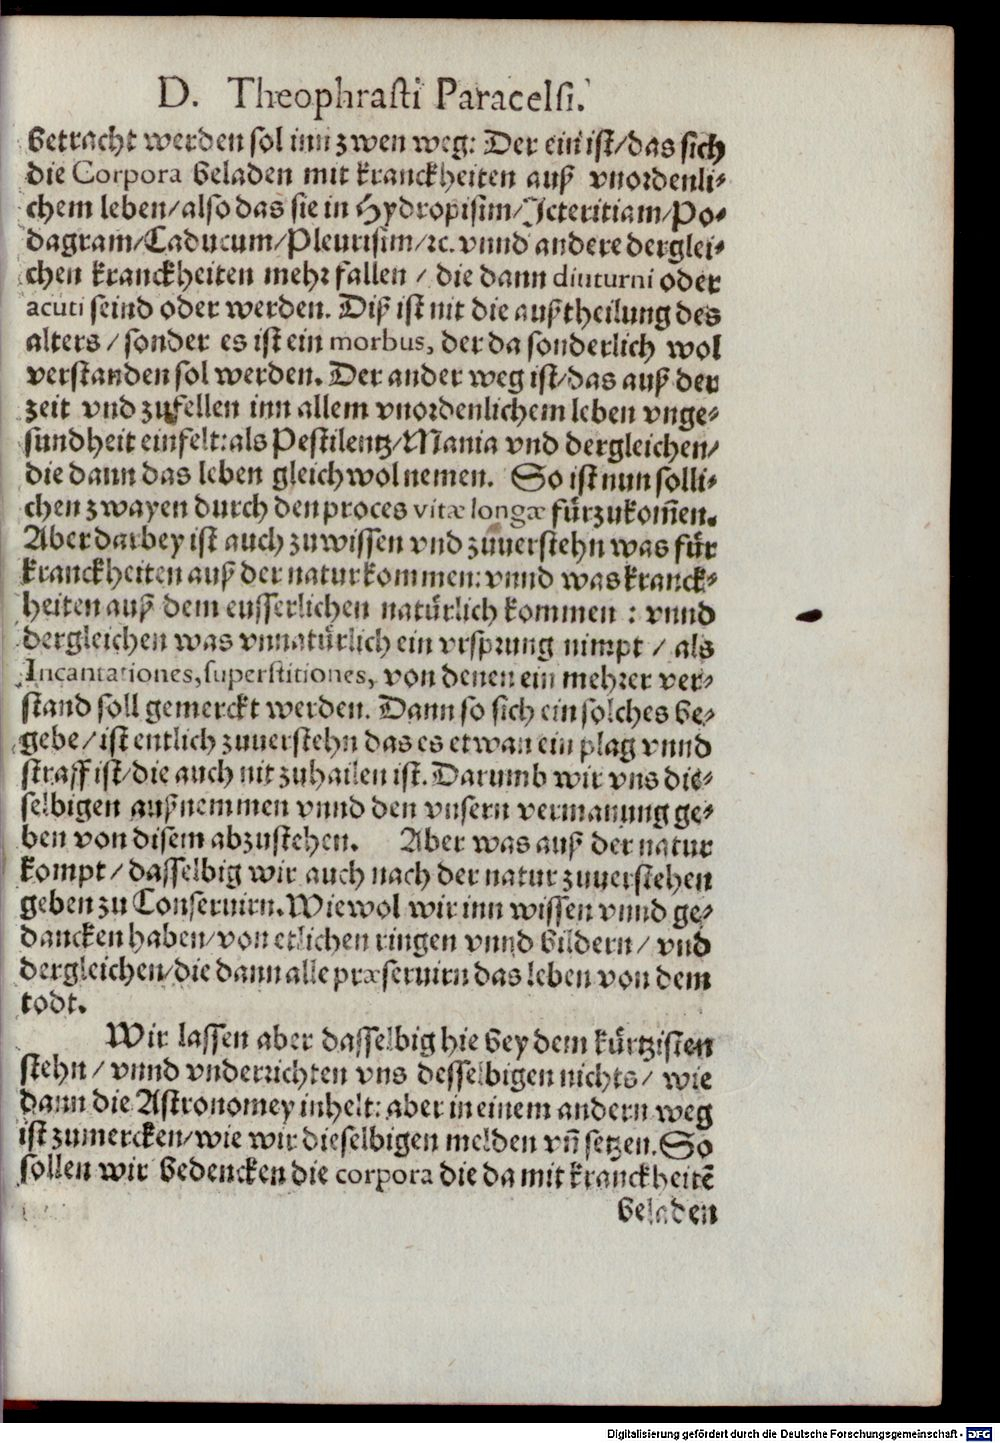 D. Theophrasti Paracelsi.
betracht werden sol inn zwen weg: Der ein ist/das sich
die Corpora beladen mit kranckheiten auß vnordenli-
chem leben/also das sie in Hydropisim/Icteritiam/Po-
dagram/Caducum/Pleurisim/ꝛc. vnnd andere derglei-
chen kranckheiten mehr fallen / die dann diuturni oder
acuti seind oder werden. Diß ist nit die außtheilung des
alters / sonder es ist ein morbus, der da sonderlich wol
verstanden sol werden. Der ander weg ist/das auß der
zeit vnd zufellen inn allem vnordenlichem leben vnge-
sundheit einfelt: als Pestilentz/Mania vnd dergleichen/
die dann das leben gleichwol nemen. So ist nun solli-
chen zwayen durch den proces vitæ longæ fürzukom̃en.
Aber darbey ist auch zuwissen vnd zuuerstehn was für
kranckheiten auß der natur kommen: vnnd was kranck-
heiten auß dem eusserlichen natürlich kommen : vnnd
dergleichen was vnnatürlich ein vrsprung nimpt / als
Incantationes, superstitiones, von denen ein mehrer ver-
stand soll gemerckt werden. Dann so sich ein solches be-
gebe / ist entlich zuuerstehn das es etwan ein plag vnnd
straff ist/die auch nit zuhailen ist. Darumb wir vns die-
selbigen außnemmen vnnd den vnsern vermanung ge-
ben von disem abzustehen. Aber was auß der natur
kompt / dasselbig wir auch nach der natur zuuerstehen
geben zu Conseruirn. Wiewol wir inn wissen vnnd ge-
dancken haben/von etlichen ringen vnnd bildern / vnd
dergleichen/die dann alle præseruirn das leben von dem
todt.
Wir lassen aber dasselbig hie bey dem kürtzisten
stehn / vnnd vnderrichten vns desselbigen nichts / wie
dann die Astronomey inhelt: aber in einem andern weg
ist zumercken/wie wir dieselbigen melden vñ setzen. So
sollen wir bedencken die corpora die da mit kranckheitẽ
beladen
Digitalisierung gefördert durch die Deutsche Forschungsgemeinschaft - DFG